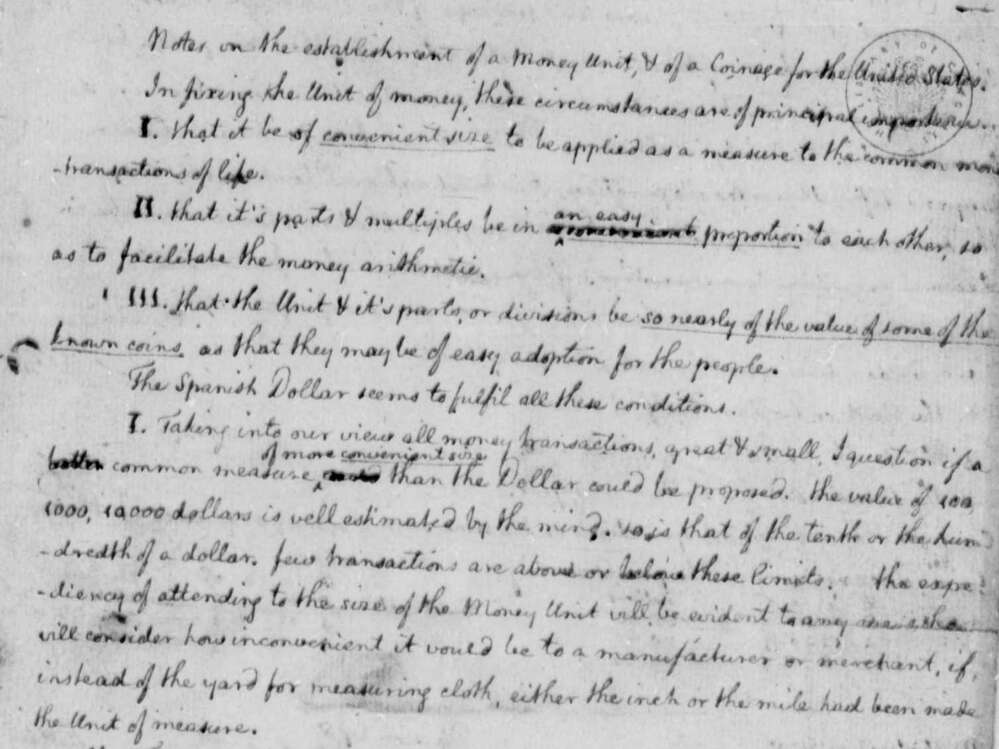 Notes on the establishment of a Money Unit, & of a Coinage for the United States.
In fixing the Unit of money, these circumstances are of principal importance.
I. that it be of convenient size to be applied as a measure to the common mon
-transactions of life.
II. that it's parts & multiples be in an easy proportion to each other, so
as to facilitate the money arithmetic.
III. that the Unit & it's parts, or divisions be so nearly of the value of some of the
known coins, as that they may be of easy adoption for the people.
The Spanish Dollar seems to fulfil all these conditions.
I. Taking into our view all money transactions, great & small, I question if a
common measure of more convenient size than the Dollar could be proposed. the value of 100,
1000, 10,000 dollars is well estimated by the mind. so is that of the tenth or the hun
-dredth of a dollar. few transactions are above or below these limits. the expe
-diency of attending to the size of the Money Unit will be evident to any who
will consider how inconvenient it would be to a manufacturer or merchant, if,
instead of the yard for measuring cloth, either the inch or the mile had been made
the Unit of measure.